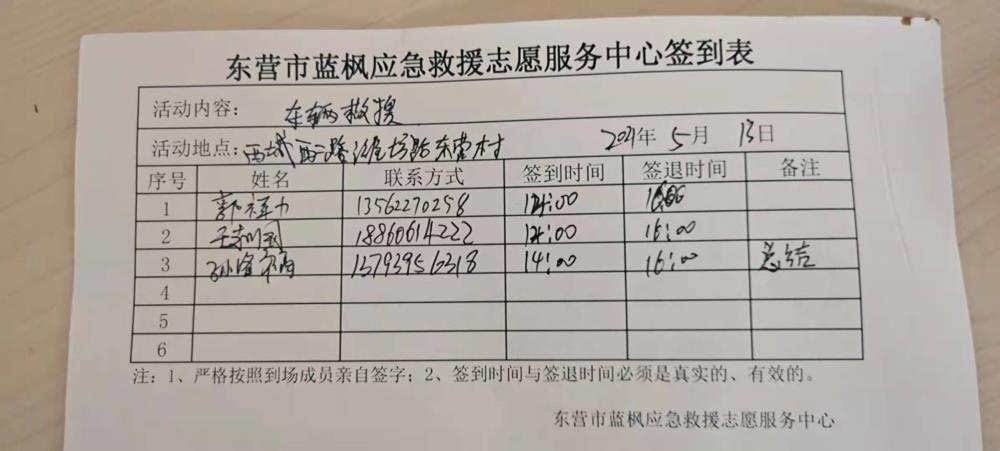 东营市蓝枫应急救援志愿服务中心签到表
活动内容： 车辆救援
活动地点：西城西二路 东营村 2021年 5月 13日
序号 姓名 联系方式 签到时间 签退时间 备注
1 13562270258 14:00
2 18860614222 14:00 16:00
3 13793956318 14:00 16:00 总结
4
5
6
注：1、严格按照到场成员亲自签字；2、签到时间与签退时间必须是真实的、有效的。
东营市蓝枫应急救援志愿服务中心